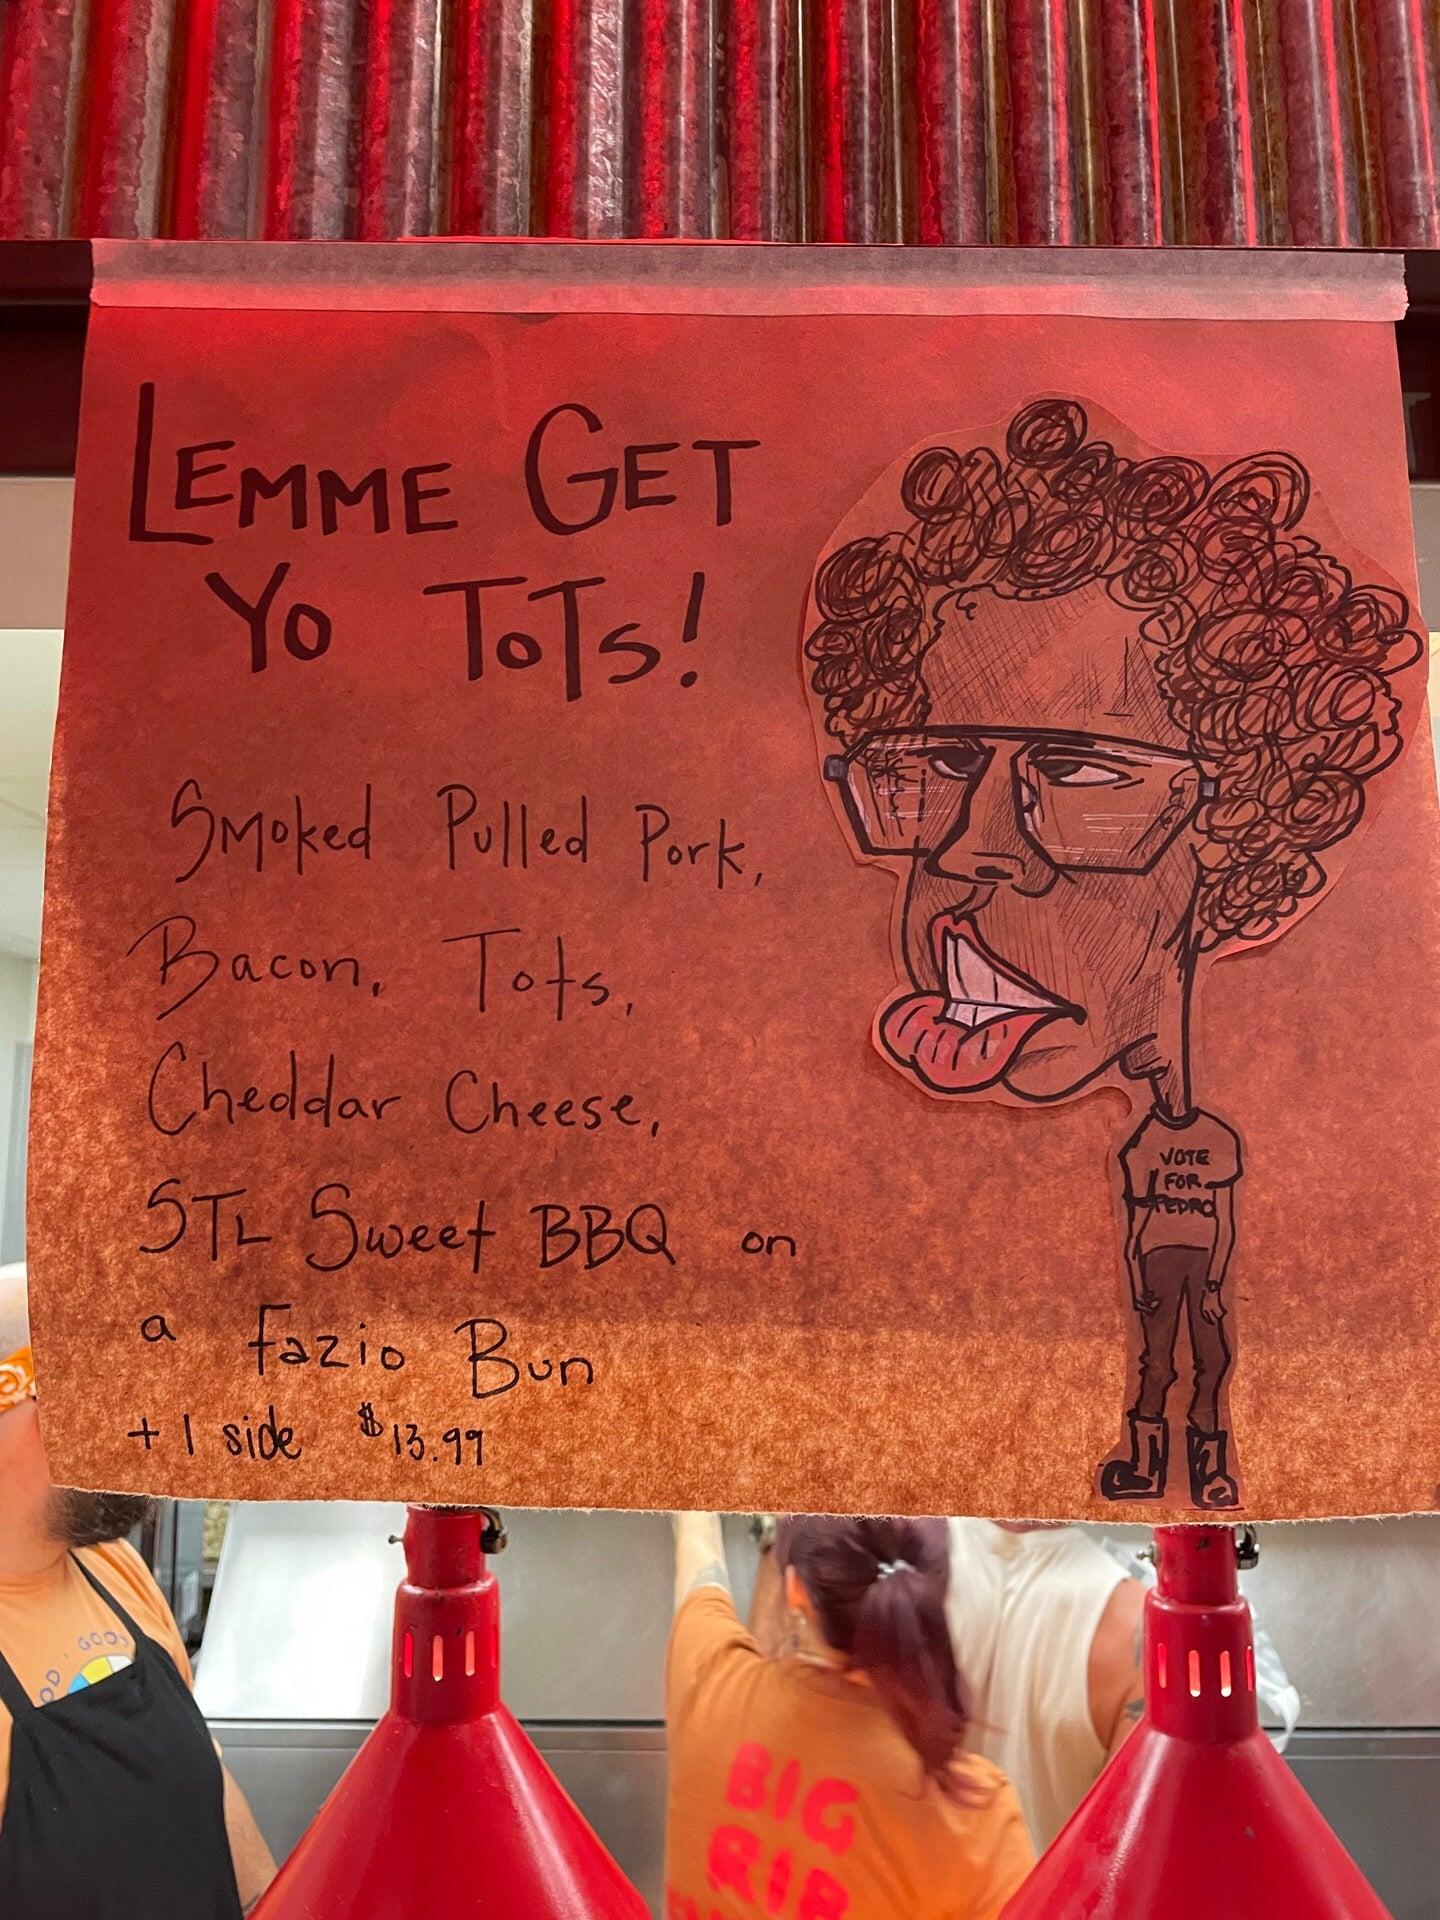 LEMME GET
YO TOTS!
Smoked Pulled Pork,
Bacon, Tots,
Cheddar Cheese,
STL Sweet BBQ on
a Fazio Bun
+ 1 side $13.99
VOTE
FOR
PEDRO
GOOD
BIG
RIB